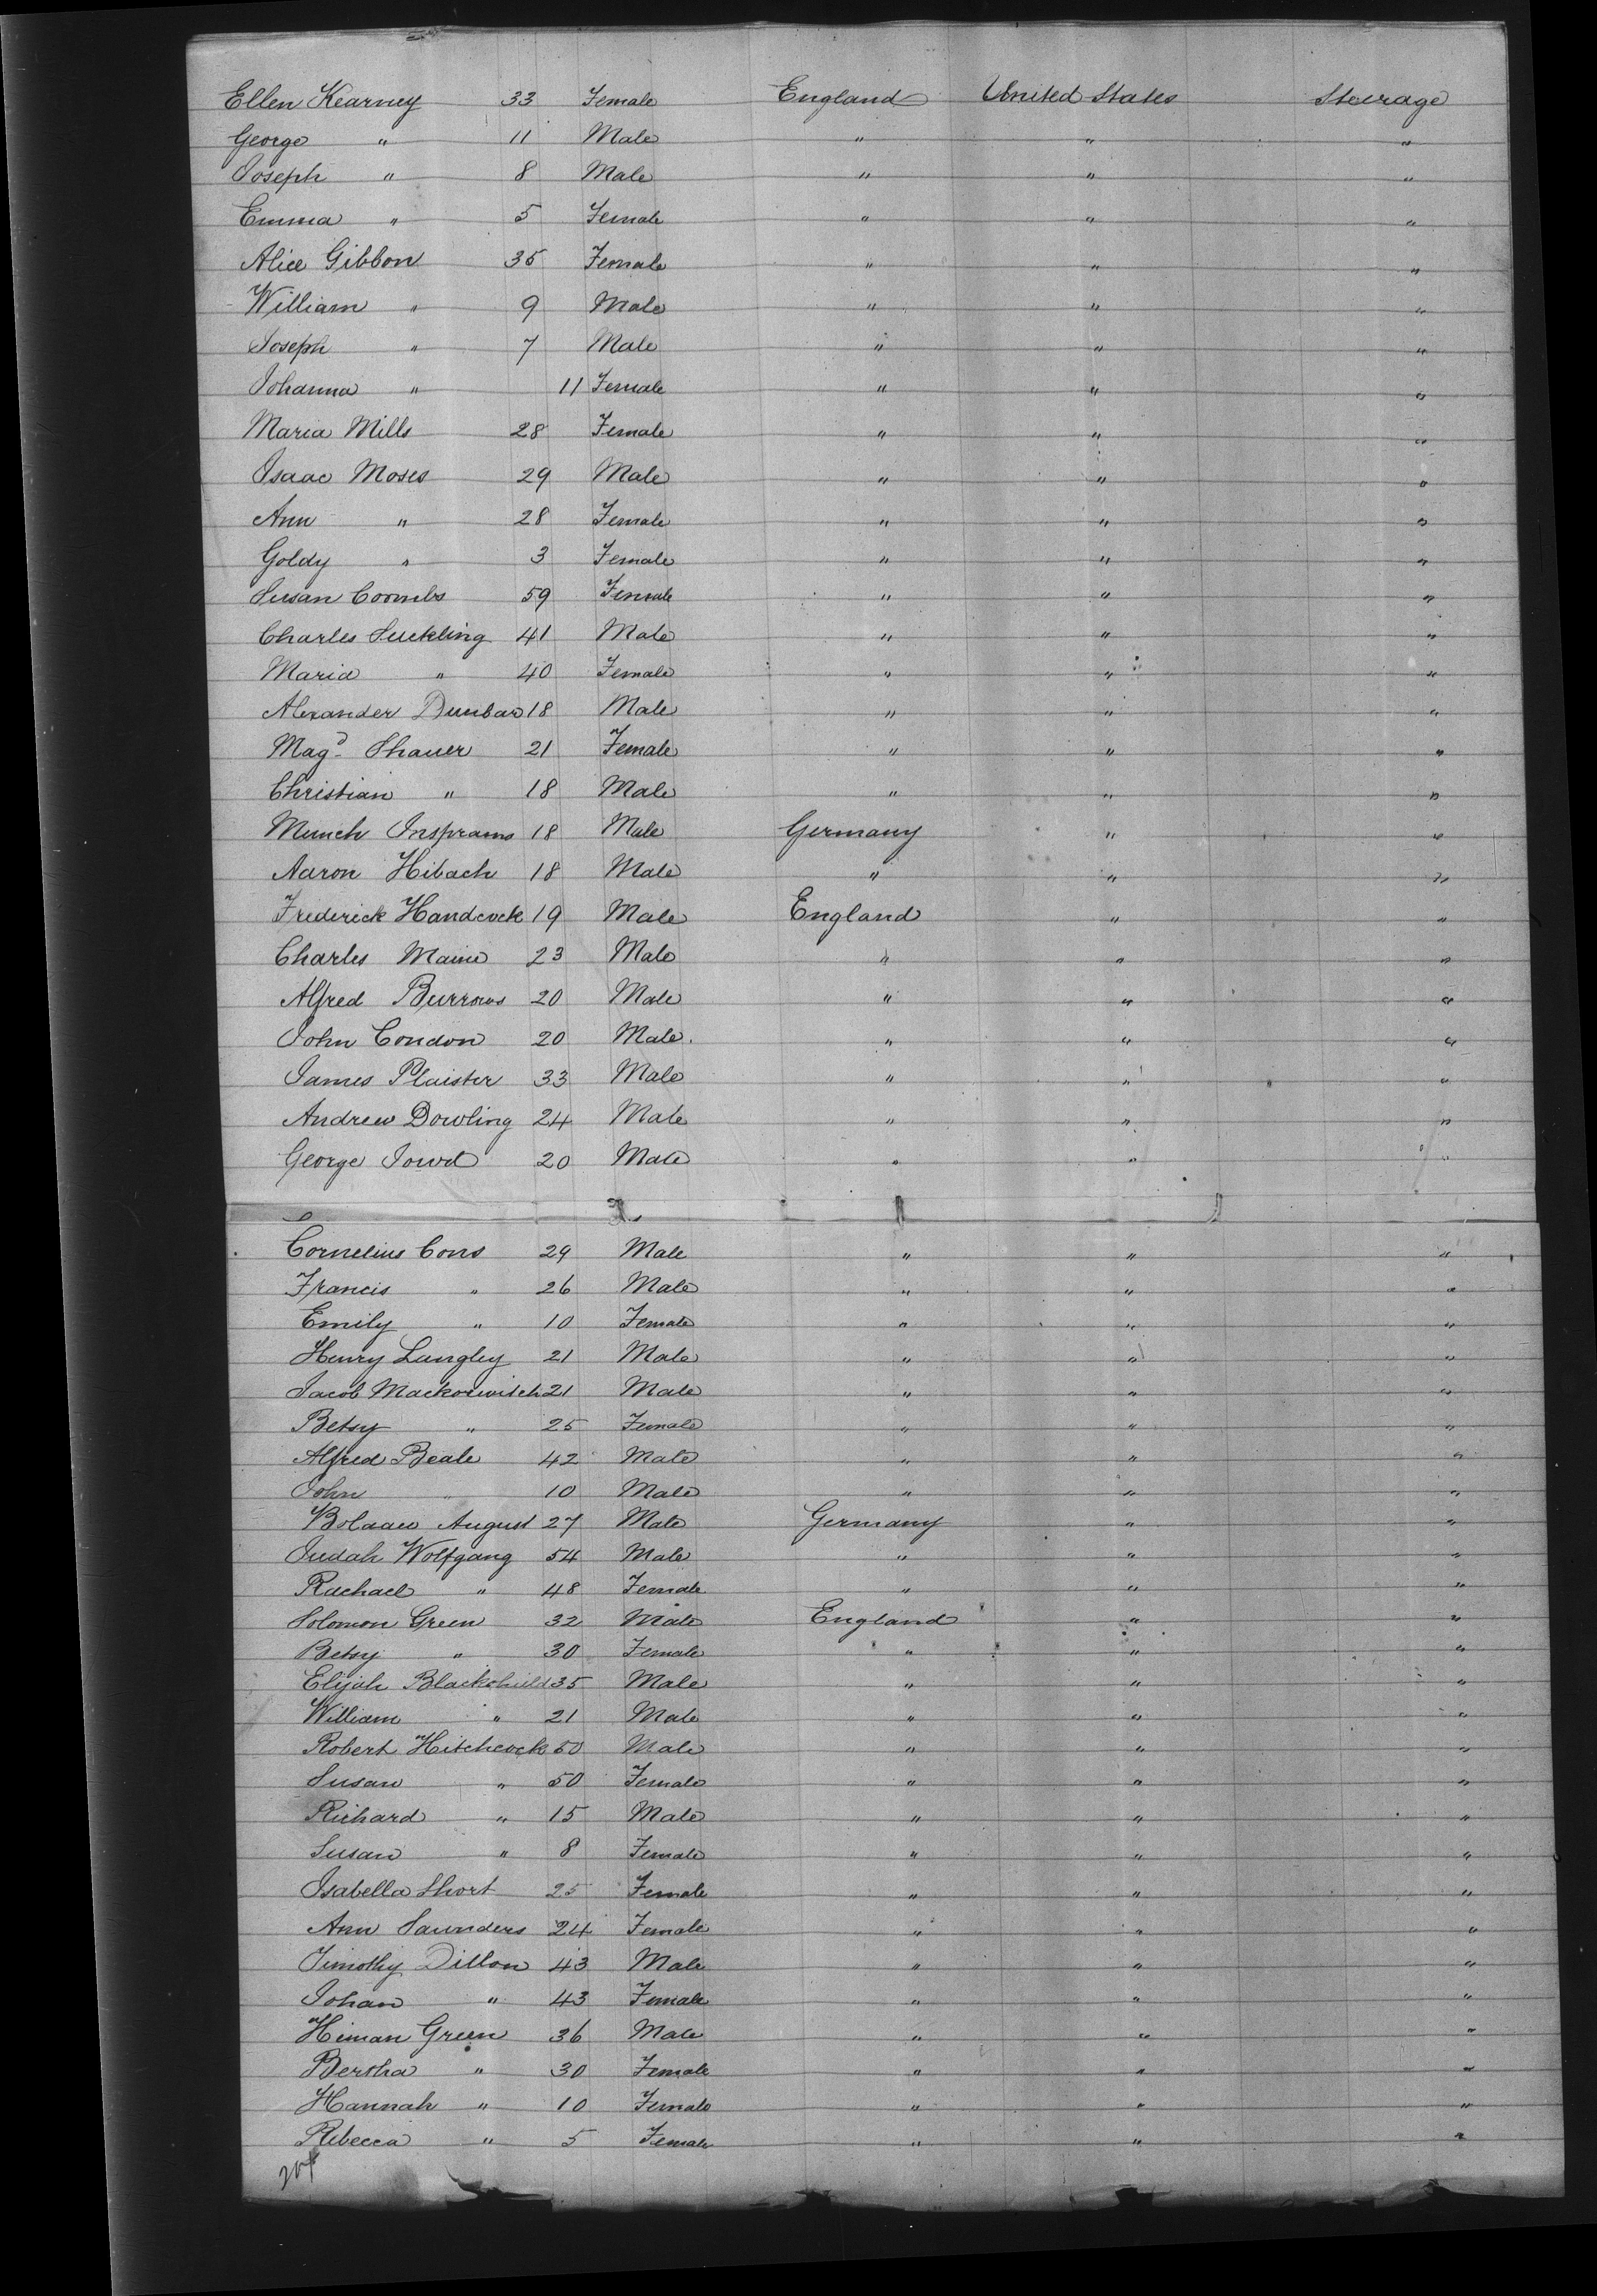 Ellen Kearney 33 Female England United States Steerage
George " 11 Male " " "
Joseph " 8 Male " " "
Emma " 5 Female " " "
Alice Gibbon 35 Female " " "
William " 9 Male " " "
Joseph " 7 Male " " "
Johanna " 11 Female " " "
Maria Mills 28 Female " " "
Isaac Moses 29 Male " " "
Ann " 28 Female " " "
Goldy " 3 Female " " "
Susan Coombs 59 Female " " "
Charles Suckling 41 Male " " "
Maria " 40 Female " " "
Alexander Dunbar 18 Male " " "
Magd Shauer 21 Female " " "
Christian " 18 Male " " "
Munch 18 Male Germany " "
Aaron Hibach 18 Male " " "
Frederick Handcock 19 Male England " "
Charles Maine 23 Male " " "
Alfred Burrows 20 Male " " "
John Condon 20 Male " " "
James Plaister 33 Male " " "
Andrew Dowling 24 Male " " "
George 20 Male " " "
Cornelius Cons 29 Male " " "
Francis " 26 Male " " "
Emily " 10 Female " " "
Henry Langley 21 Male " " "
Jacob Mackorwitch 21 Male " " "
Betsy " 25 Female " " "
Alfred Beale 42 Male " " "
John " 10 Male " " "
August 27 Male Germany " "
Judah Wolfgang 54 Male " " "
Rachael " 48 Female " " "
Solomon Green 32 Male England " "
Betsy " 30 Female " " "
Elijah Blackshield 35 Male " " "
William " 21 Male " " "
Robert Hitchcock 50 Male " " "
Susan " 50 Female " " "
Richard " 15 Male " " "
Susan " 8 Female " " "
Isabella Short 25 Female " " "
Ann Saunders 24 Female " " "
Timothy Dillon 43 Male " " "
Johan " 43 Female " " "
Himan Green 36 Male " " "
Bertha " 30 Female " " "
Hannah " 10 Female " " "
Rebecca " 5 Female " " "